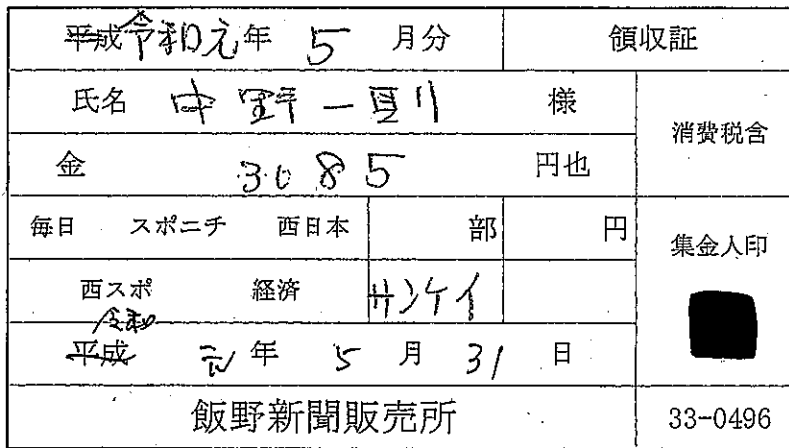 平成令和元年 5 月分 領収証
氏名 中野一則 様 消費税含
金 3085 円也
毎日 スポニチ 西日本 部 円 集金人印
西スポ 経済 サンケイ
令和
平成 元年 5月31日
飯野新聞販売所 33-0496